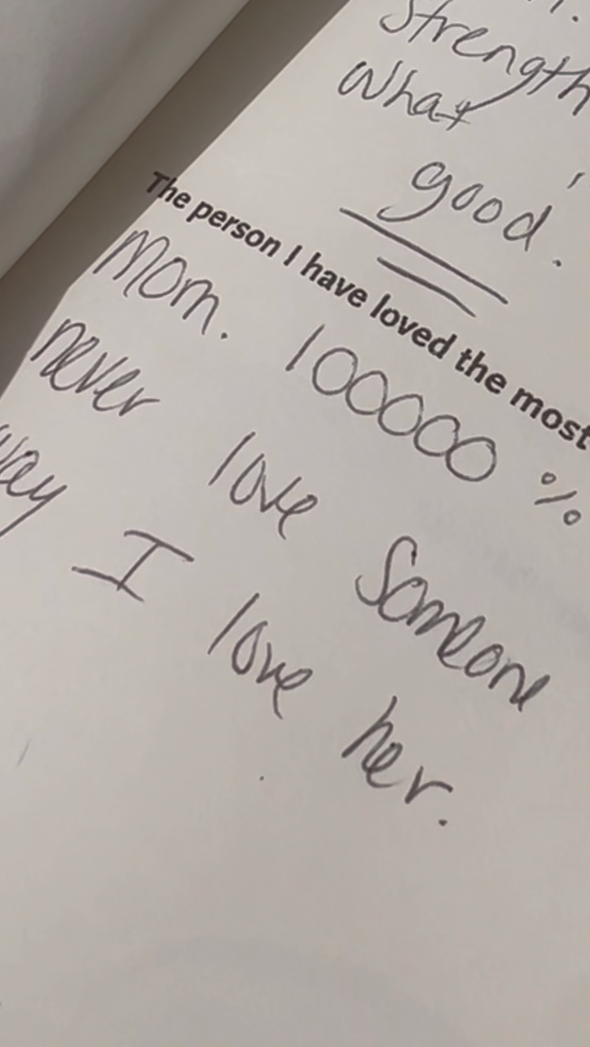 Strength
What
good.
The person I have loved the most
Mom. 100000 %
never love someone
way I love her.